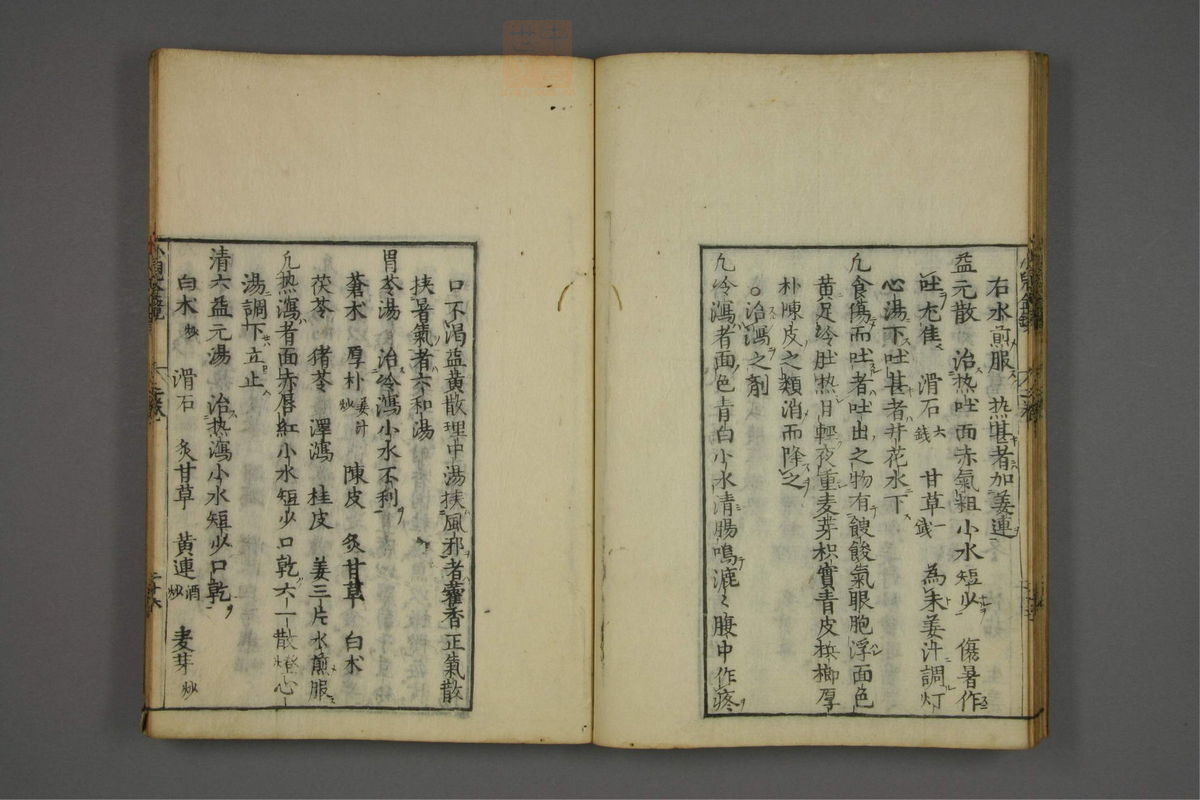 右水煎服 热甚者加姜連
益元散 治热吐面赤氣粗小水短少 傷暑作
吐尤隹 滑石六錢 甘草一錢 為末姜汁調灯
心湯下吐甚者井花水下
凢食傷而吐者吐出之物有餿酸氣眼胞浮面色
黄足冷肚热日輕夜重麦芽枳實青皮檳榔厚
朴陳皮之類消而降之
○治瀉之劑
凢冷瀉者面色青白小水清腸鳴漉〻腹中作疼
口不渴益黄散理中湯挟風邪者藿香正氣散
挟暑氣者六和湯
胃苓湯 治冷瀉小水不利
蒼朮 厚朴姜汁炒 陳皮 炙甘草 白朮
茯苓 猪苓 澤瀉 桂皮 姜三片水煎服
凢热瀉者面赤唇紅小水短少口乾六一散燈心
湯調下立止
清六益元湯 治热瀉小水短少口乾
白朮炒 滑石 炙甘草 黄連酒炒 麦芽炒